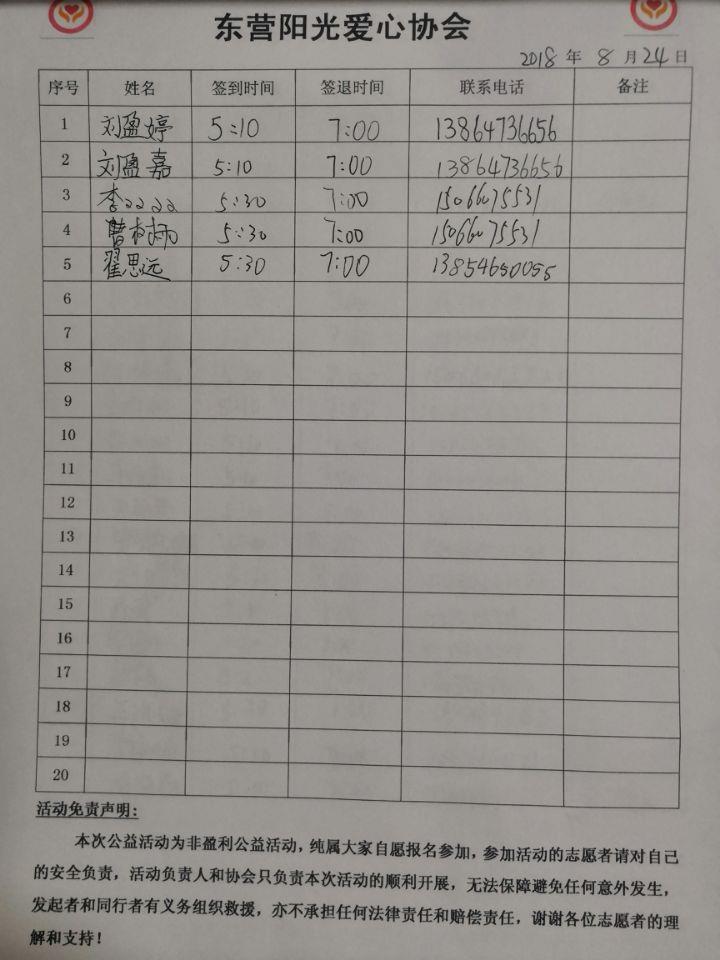 东营阳光爱心协会
2018 年 8 月 24 日
序号 姓名 签到时间 签退时间 联系电话 备注
1 刘盈婷 5:10 7:00 13864736656
2 刘盈嘉 5:10 7:00 13864736656
3 李 5:30 7:00 15066075531
4 曹 5:30 7:00 15066075531
5 翟思远 5:30 7:00 13854650055
6
7
8
9
10
11
12
13
14
15
16
17
18
19
20
活动免责声明:
本次公益活动为非盈利公益活动，纯属大家自愿报名参加，参加活动的志愿者请对自己
的安全负责，活动负责人和协会只负责本次活动的顺利开展，无法保障避免任何意外发生，
发起者和同行者有义务组织救援，亦不承担任何法律责任和赔偿责任，谢谢各位志愿者的理
解和支持！